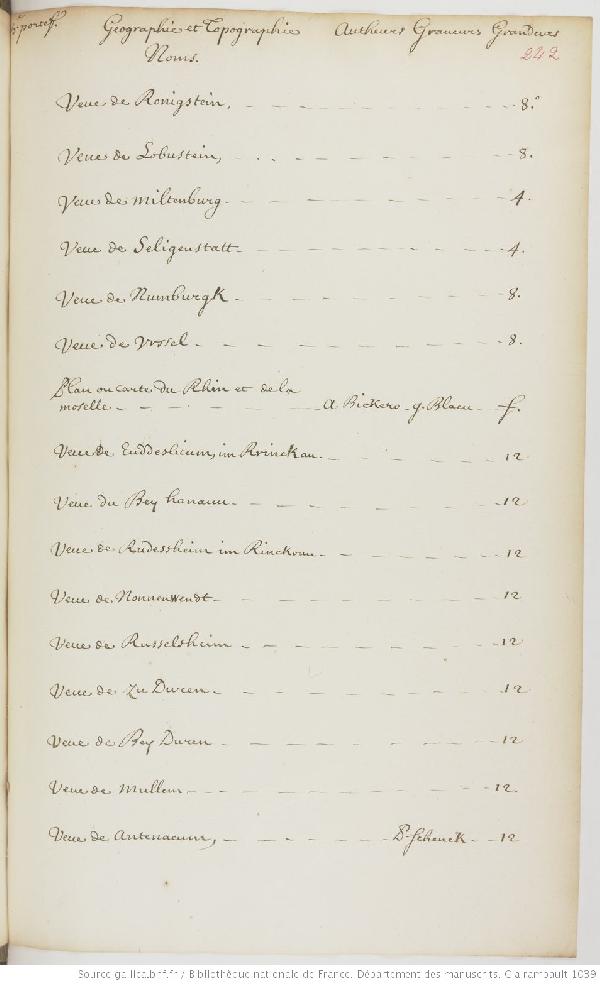 portef. Geographie et Topographie Autheurs Graveurs Grandeurs
Noms. 242
Veue de Konigstein, 8.°
Veue de Lobustein, 8.
Veue de Miltenburg 4.
Veue de Seligenstatt 4.
Veue de Numburgk 8.
Veue de Vrsel 8.
Plan ou carte du Rhin et de la
moselle A Bickero g. Blaeu f.
Veue de im Rrinckau. 12
Veue du Bey hanauu 12
Veue de Rudessheim im Rinckouu 12
Veue de Nonnenwendt 12
Veue de Russelsheim 12
Veue de Zu Duren 12
Veue de Bey Duren 12
Veue de Mullem 12.
Veue de Antenacum, P. schenck 12
Source gallica.bnf.fr / Bibliothèque nationale de France. Département des manuscrits. Clairambault 1039